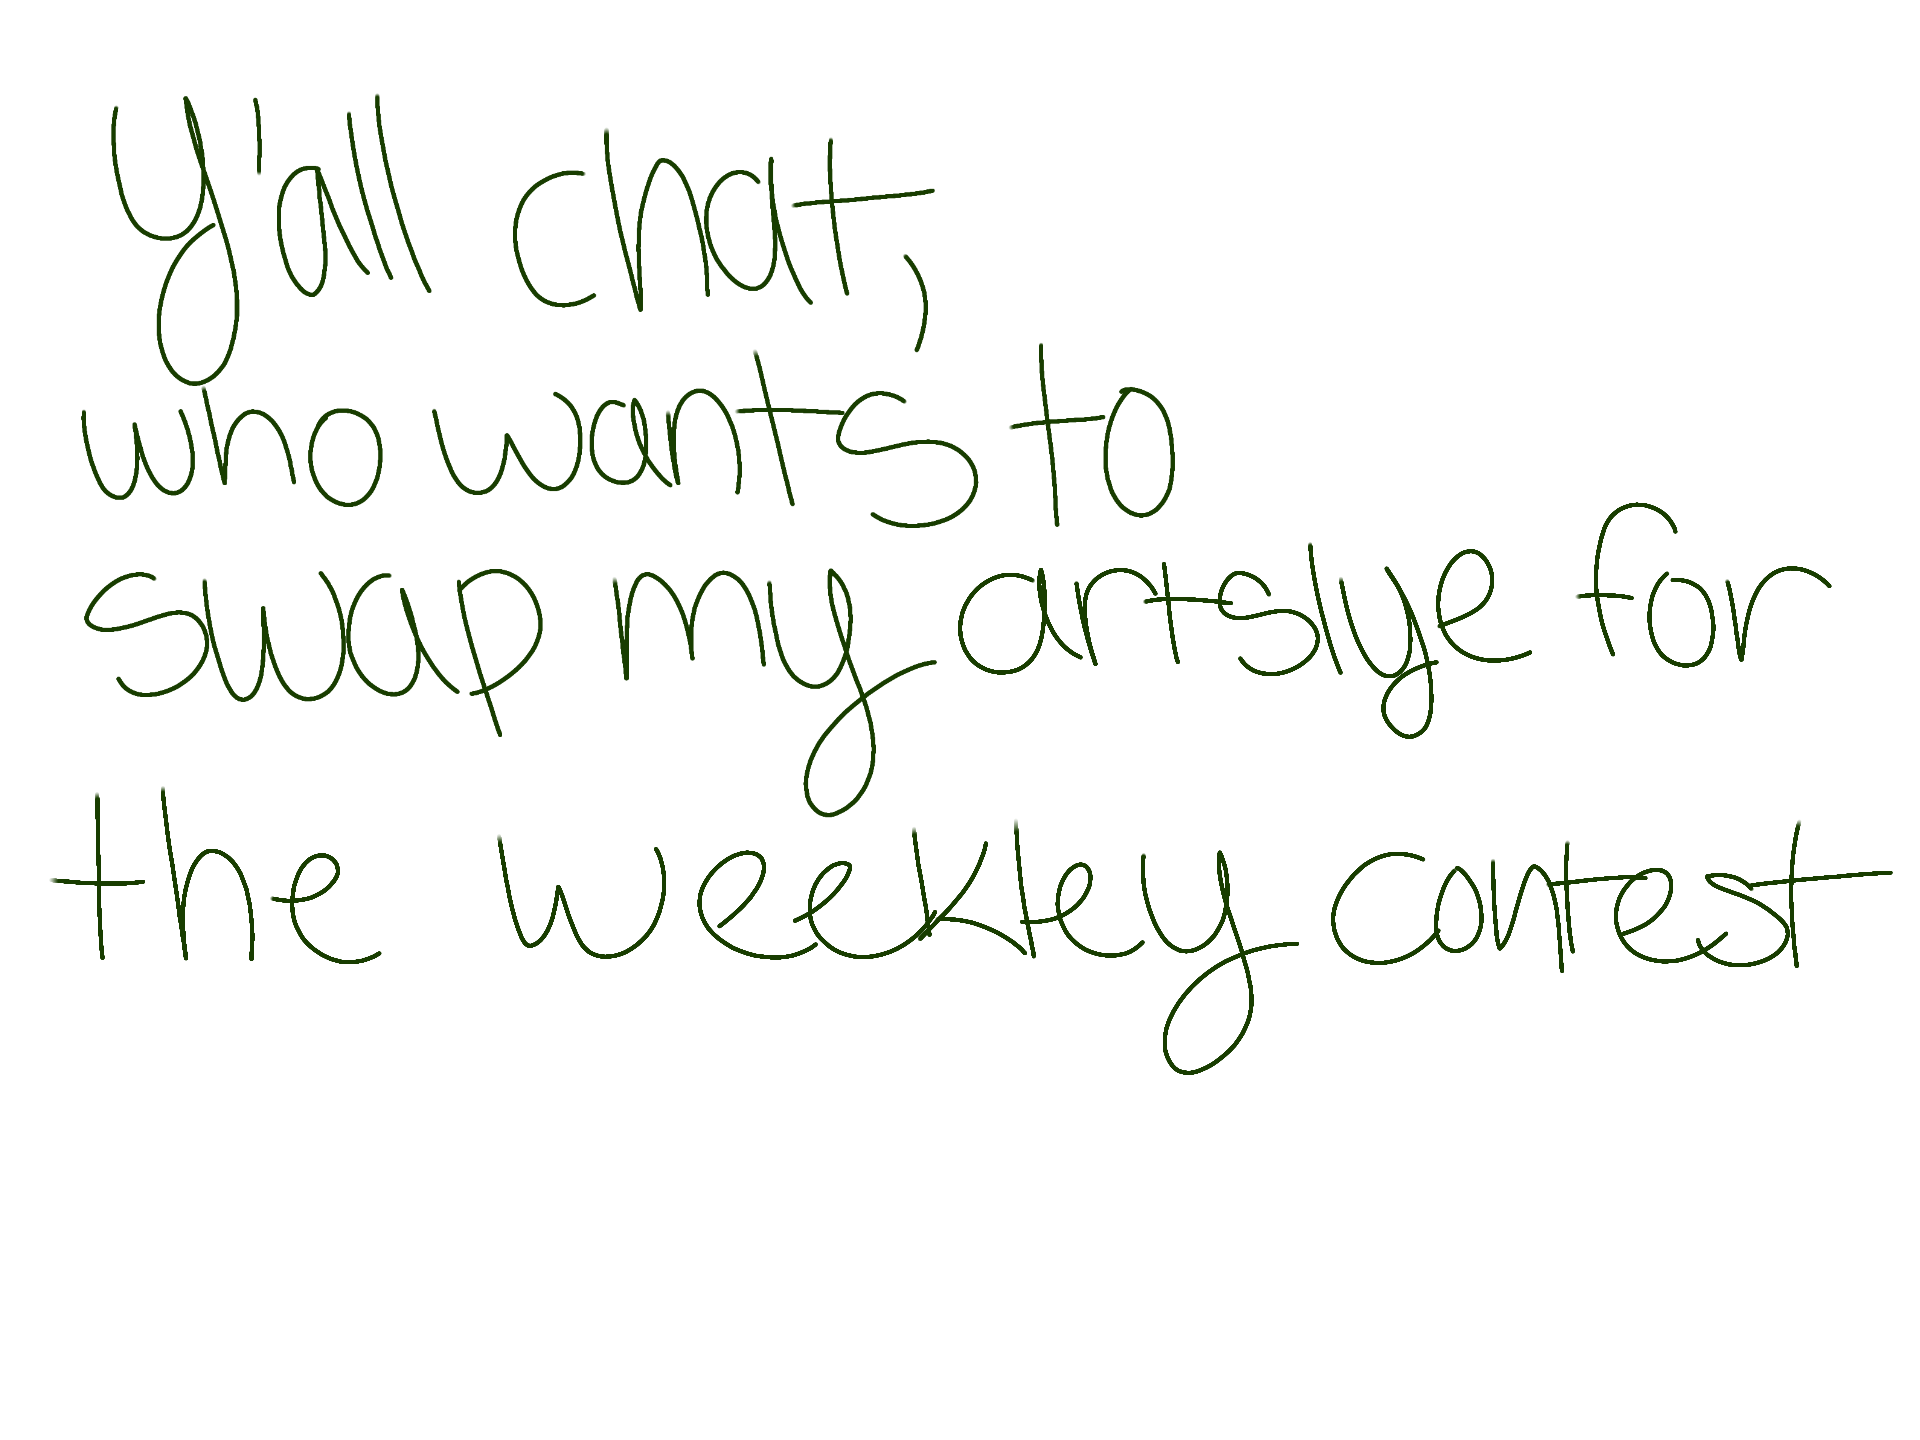 Y'all chat,
who wants to
swap my artslye for
the weekley contest